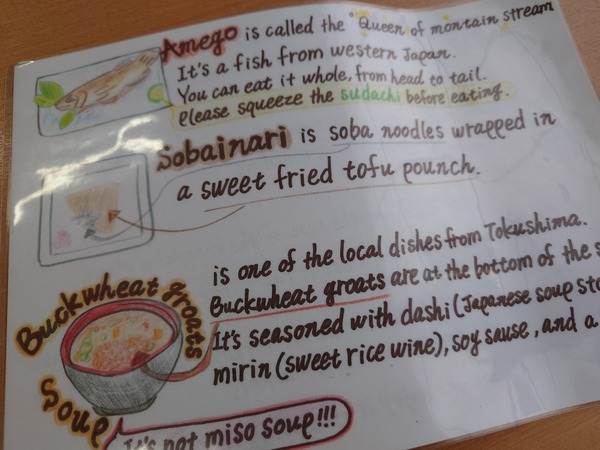 Amego is called the "Queen of montain stream
It's a fish from western Japan.
You can eat it whole, from head to tail.
Please squeeze the sudachi before eating.
Sobainari is soba noodles wrapped in
a sweet fried tofu pounch.
Buckwheat groats
Soup
is one of the local dishes from Tokushima.
Buckwheat groats are at the bottom of the
It's seasoned with dashi (Japanese soup
mirin (sweet rice wine), soy sause, and a
It's not miso soup!!!